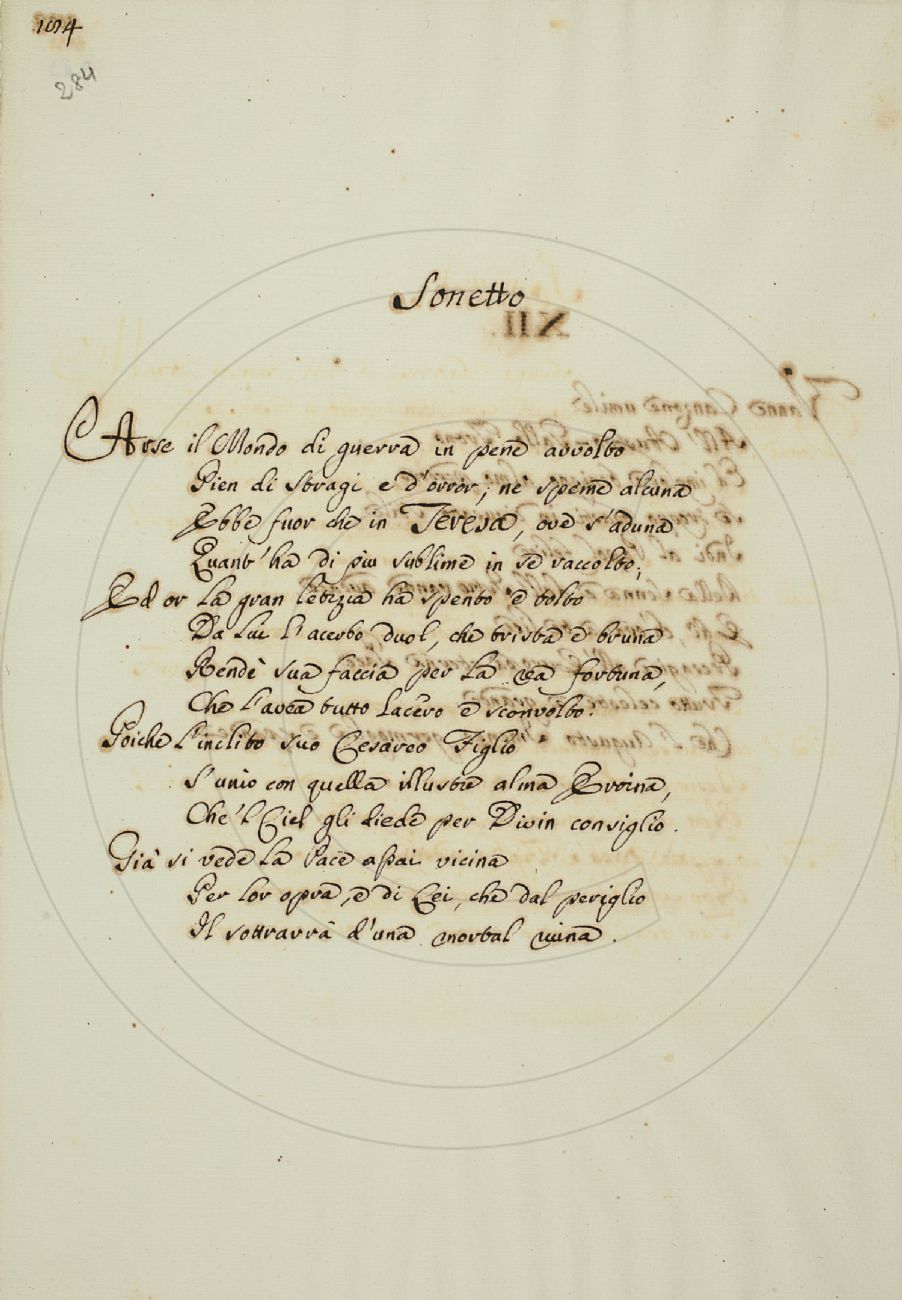 184
284
Sonetto
Arse il Mondo di guerra in pene avvolto
Pien di stragi e d'orror; nè speme alcuna
Ebbe fuor che in Teresa, ove s'aduna
Quant' ha di più sublime in se raccolto;
Ed or la gran letizia ha spento e tolto
Da lui l'acerbo duol, che trista e bruna
Rendè sua faccia per la rea fortuna,
Che l'avea tutto lacero e sconvolto:
Poiche l'inclito suo Cesareo Figlio
s'unio con quella illustre alma Eroina,
Che'l Ciel gli diede per Divin consiglio.
Già si vede la Pace assai vicina
Per lor opra, e di Lei, che dal periglio
Il sottrarrà d'una mortal ruina.